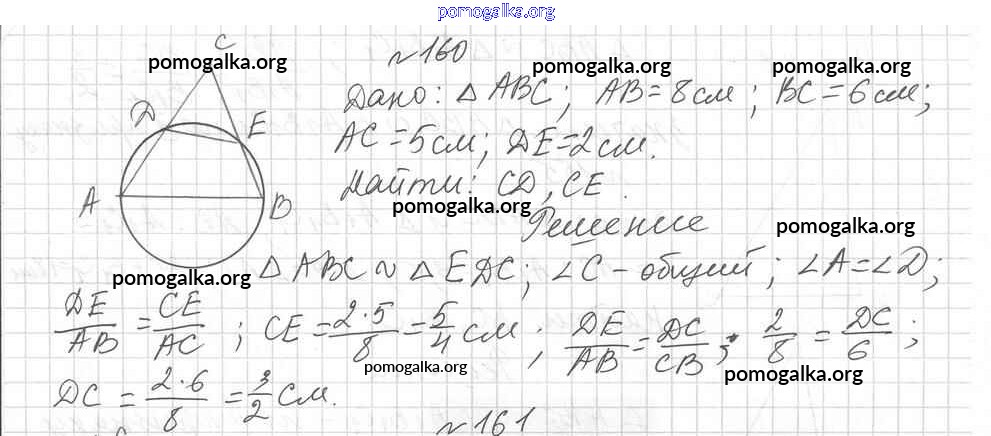 pomogalka.org
C
№160
pomogalka.org
pomogalka.org
pomogalka.org
Дано: △ ABC; AB = 8 см; BC = 6 см;
D
E
AC = 5 см; DE = 2 см.
Найти: CD, CE.
A
B
pomogalka.org
Решение
pomogalka.org
pomogalka.org
△ ABC ~ △ EDC; ∠C - общий; ∠A = ∠D;
DE/AB = CE/AC; CE = 2·5/8 = 5/4 см; DE/AB = DC/CB; 2/8 = DC/6;
pomogalka.org
pomogalka.org
DC = 2·6/8 = 3/2 см.
№161